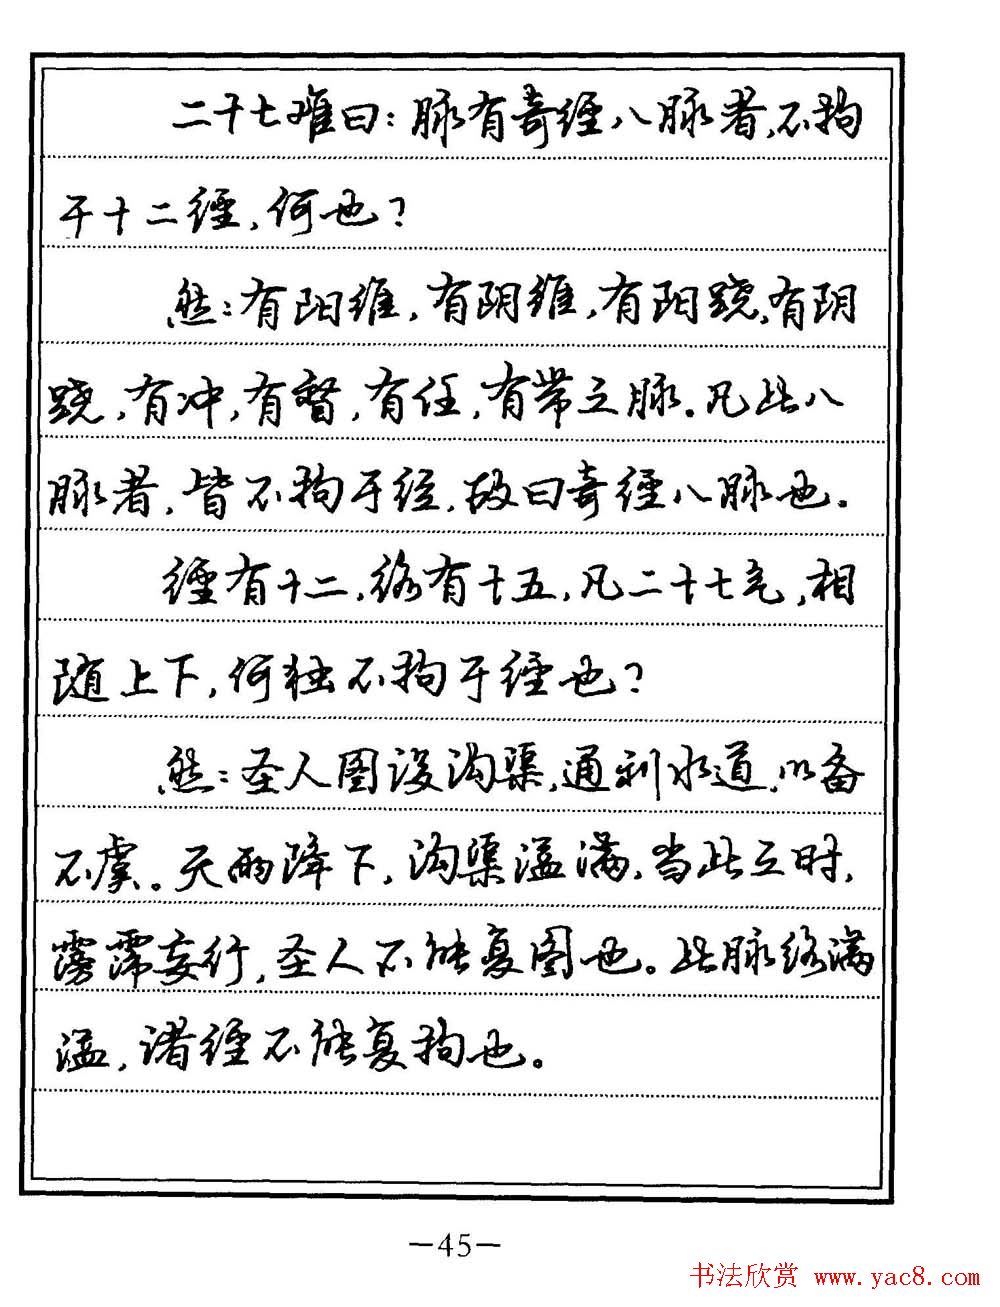 二十七难曰：脉有奇经八脉者，不拘
于十二经，何也？
然：有阳维，有阴维，有阳跷，有阴
跷，有冲，有督，有任，有带之脉。凡此八
脉者，皆不拘于经，故曰奇经八脉也。
经有十二，络有十五，凡二十七气，相
随上下，何独不拘于经也？
然：圣人图设沟渠，通利水道，以备
不虞。天雨降下，沟渠溢满，当此之时，
霶霈妄行，圣人不能复图也。此脉络满
溢，诸经不能复拘也。
—45—
书法欣赏 www.yac8.com